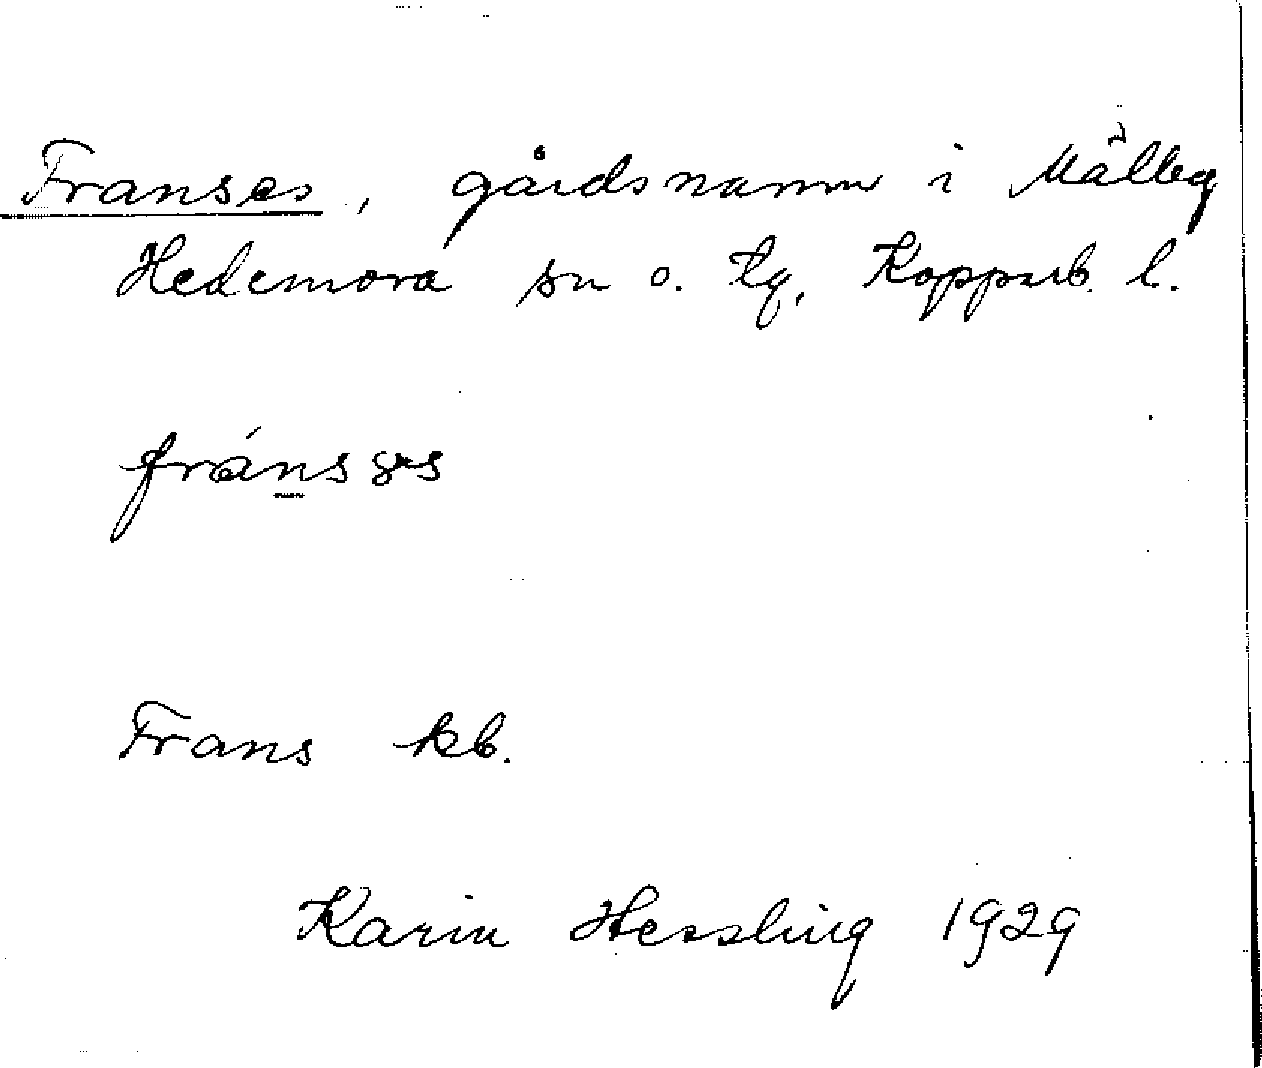 Franses, gårdsnamn i Målby
Hedemora sn o. tg, Kopparb. l.
fránsəs
Frans kb.
Karin Hessling 1929